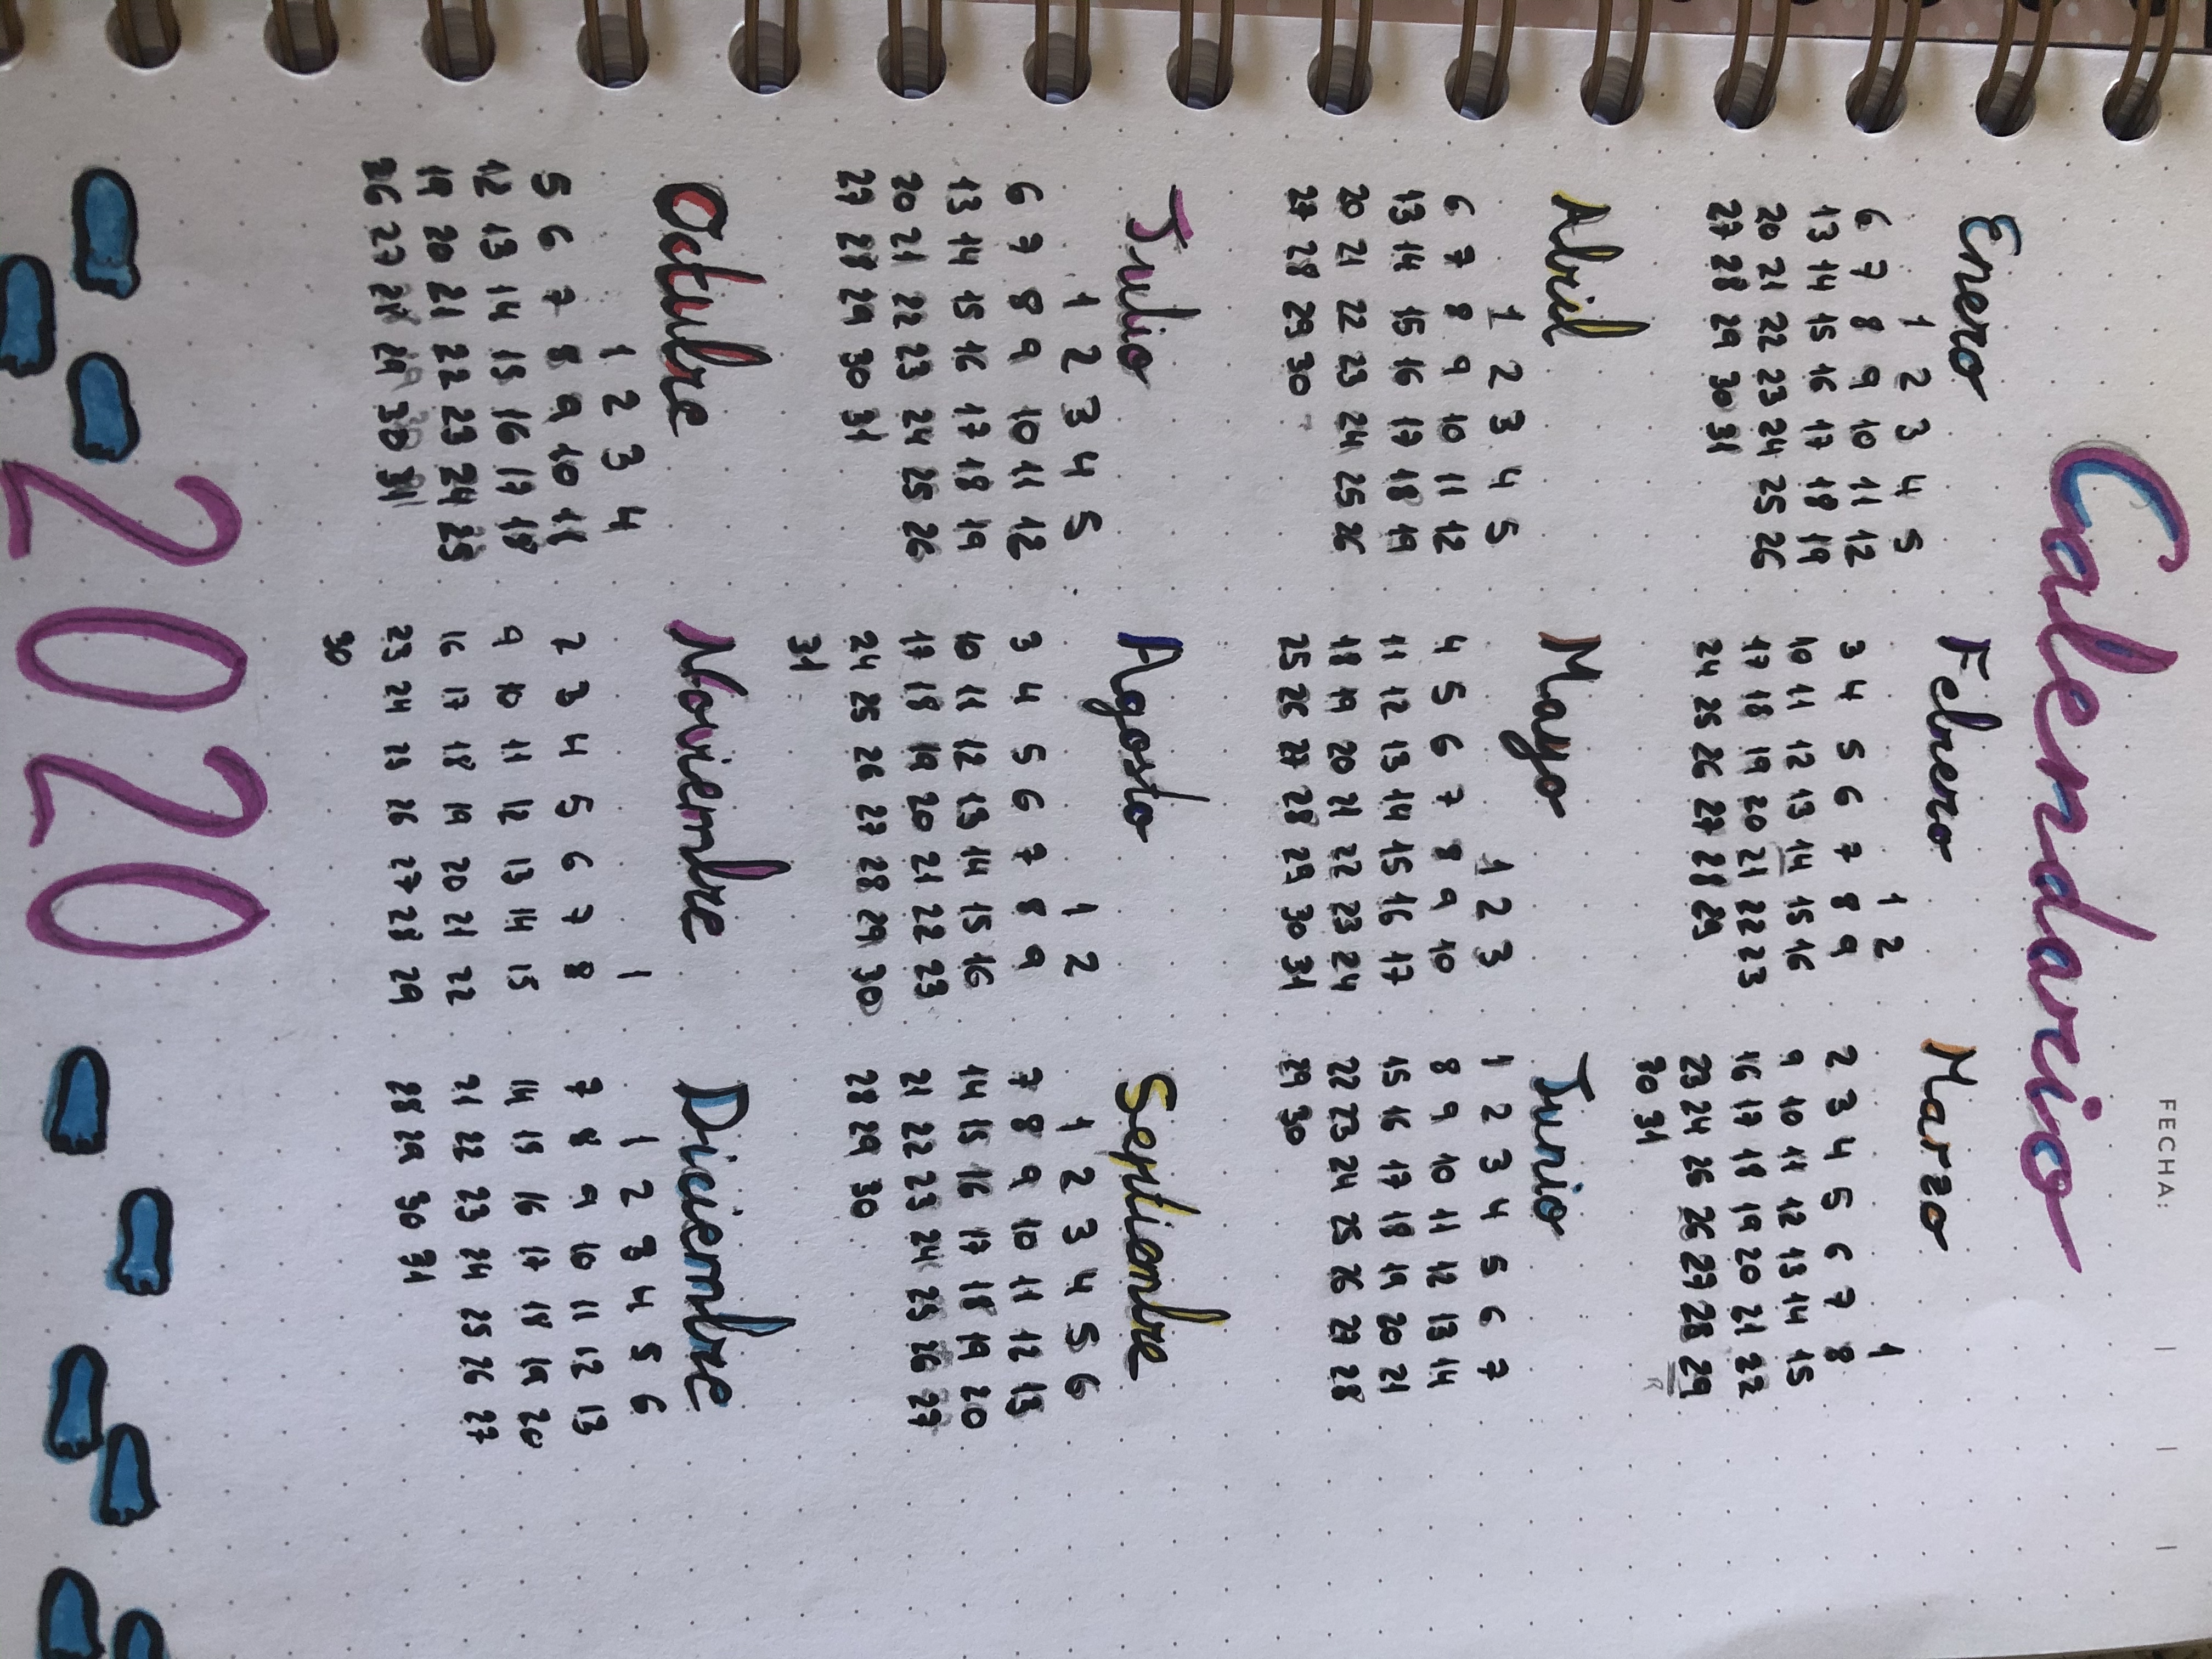 FECHA:
Calendario
Enero
1 2 3 4 5
6 7 8 9 10 11 12
13 14 15 16 17 18 19
20 21 22 23 24 25 26
27 28 29 30 31
Febrero
1 2
3 4 5 6 7 8 9
10 11 12 13 14 15 16
17 18 19 20 21 22 23
24 25 26 27 28 29
Marzo
1
2 3 4 5 6 7 8
9 10 11 12 13 14 15
16 17 18 19 20 21 22
23 24 25 26 27 28 29
30 31
Abril
1 2 3 4 5
6 7 8 9 10 11 12
13 14 15 16 17 18 19
20 21 22 23 24 25 26
27 28 29 30
Mayo
1 2 3
4 5 6 7 8 9 10
11 12 13 14 15 16 17
18 19 20 21 22 23 24
25 26 27 28 29 30 31
Junio
1 2 3 4 5 6 7
8 9 10 11 12 13 14
15 16 17 18 19 20 21
22 23 24 25 26 27 28
29 30
Julio
1 2 3 4 5
6 7 8 9 10 11 12
13 14 15 16 17 18 19
20 21 22 23 24 25 26
27 28 29 30 31
Agosto
1 2
3 4 5 6 7 8 9
10 11 12 13 14 15 16
17 18 19 20 21 22 23
24 25 26 27 28 29 30
31
Septiembre
1 2 3 4 5 6
7 8 9 10 11 12 13
14 15 16 17 18 19 20
21 22 23 24 25 26 27
28 29 30
Octubre
1 2 3 4
5 6 7 8 9 10 11
12 13 14 15 16 17 18
19 20 21 22 23 24 25
26 27 28 29 30 31
Noviembre
1
2 3 4 5 6 7 8
9 10 11 12 13 14 15
16 17 18 19 20 21 22
23 24 25 26 27 28 29
30
Diciembre
1 2 3 4 5 6
7 8 9 10 11 12 13
14 15 16 17 18 19 20
21 22 23 24 25 26 27
28 29 30 31
2020